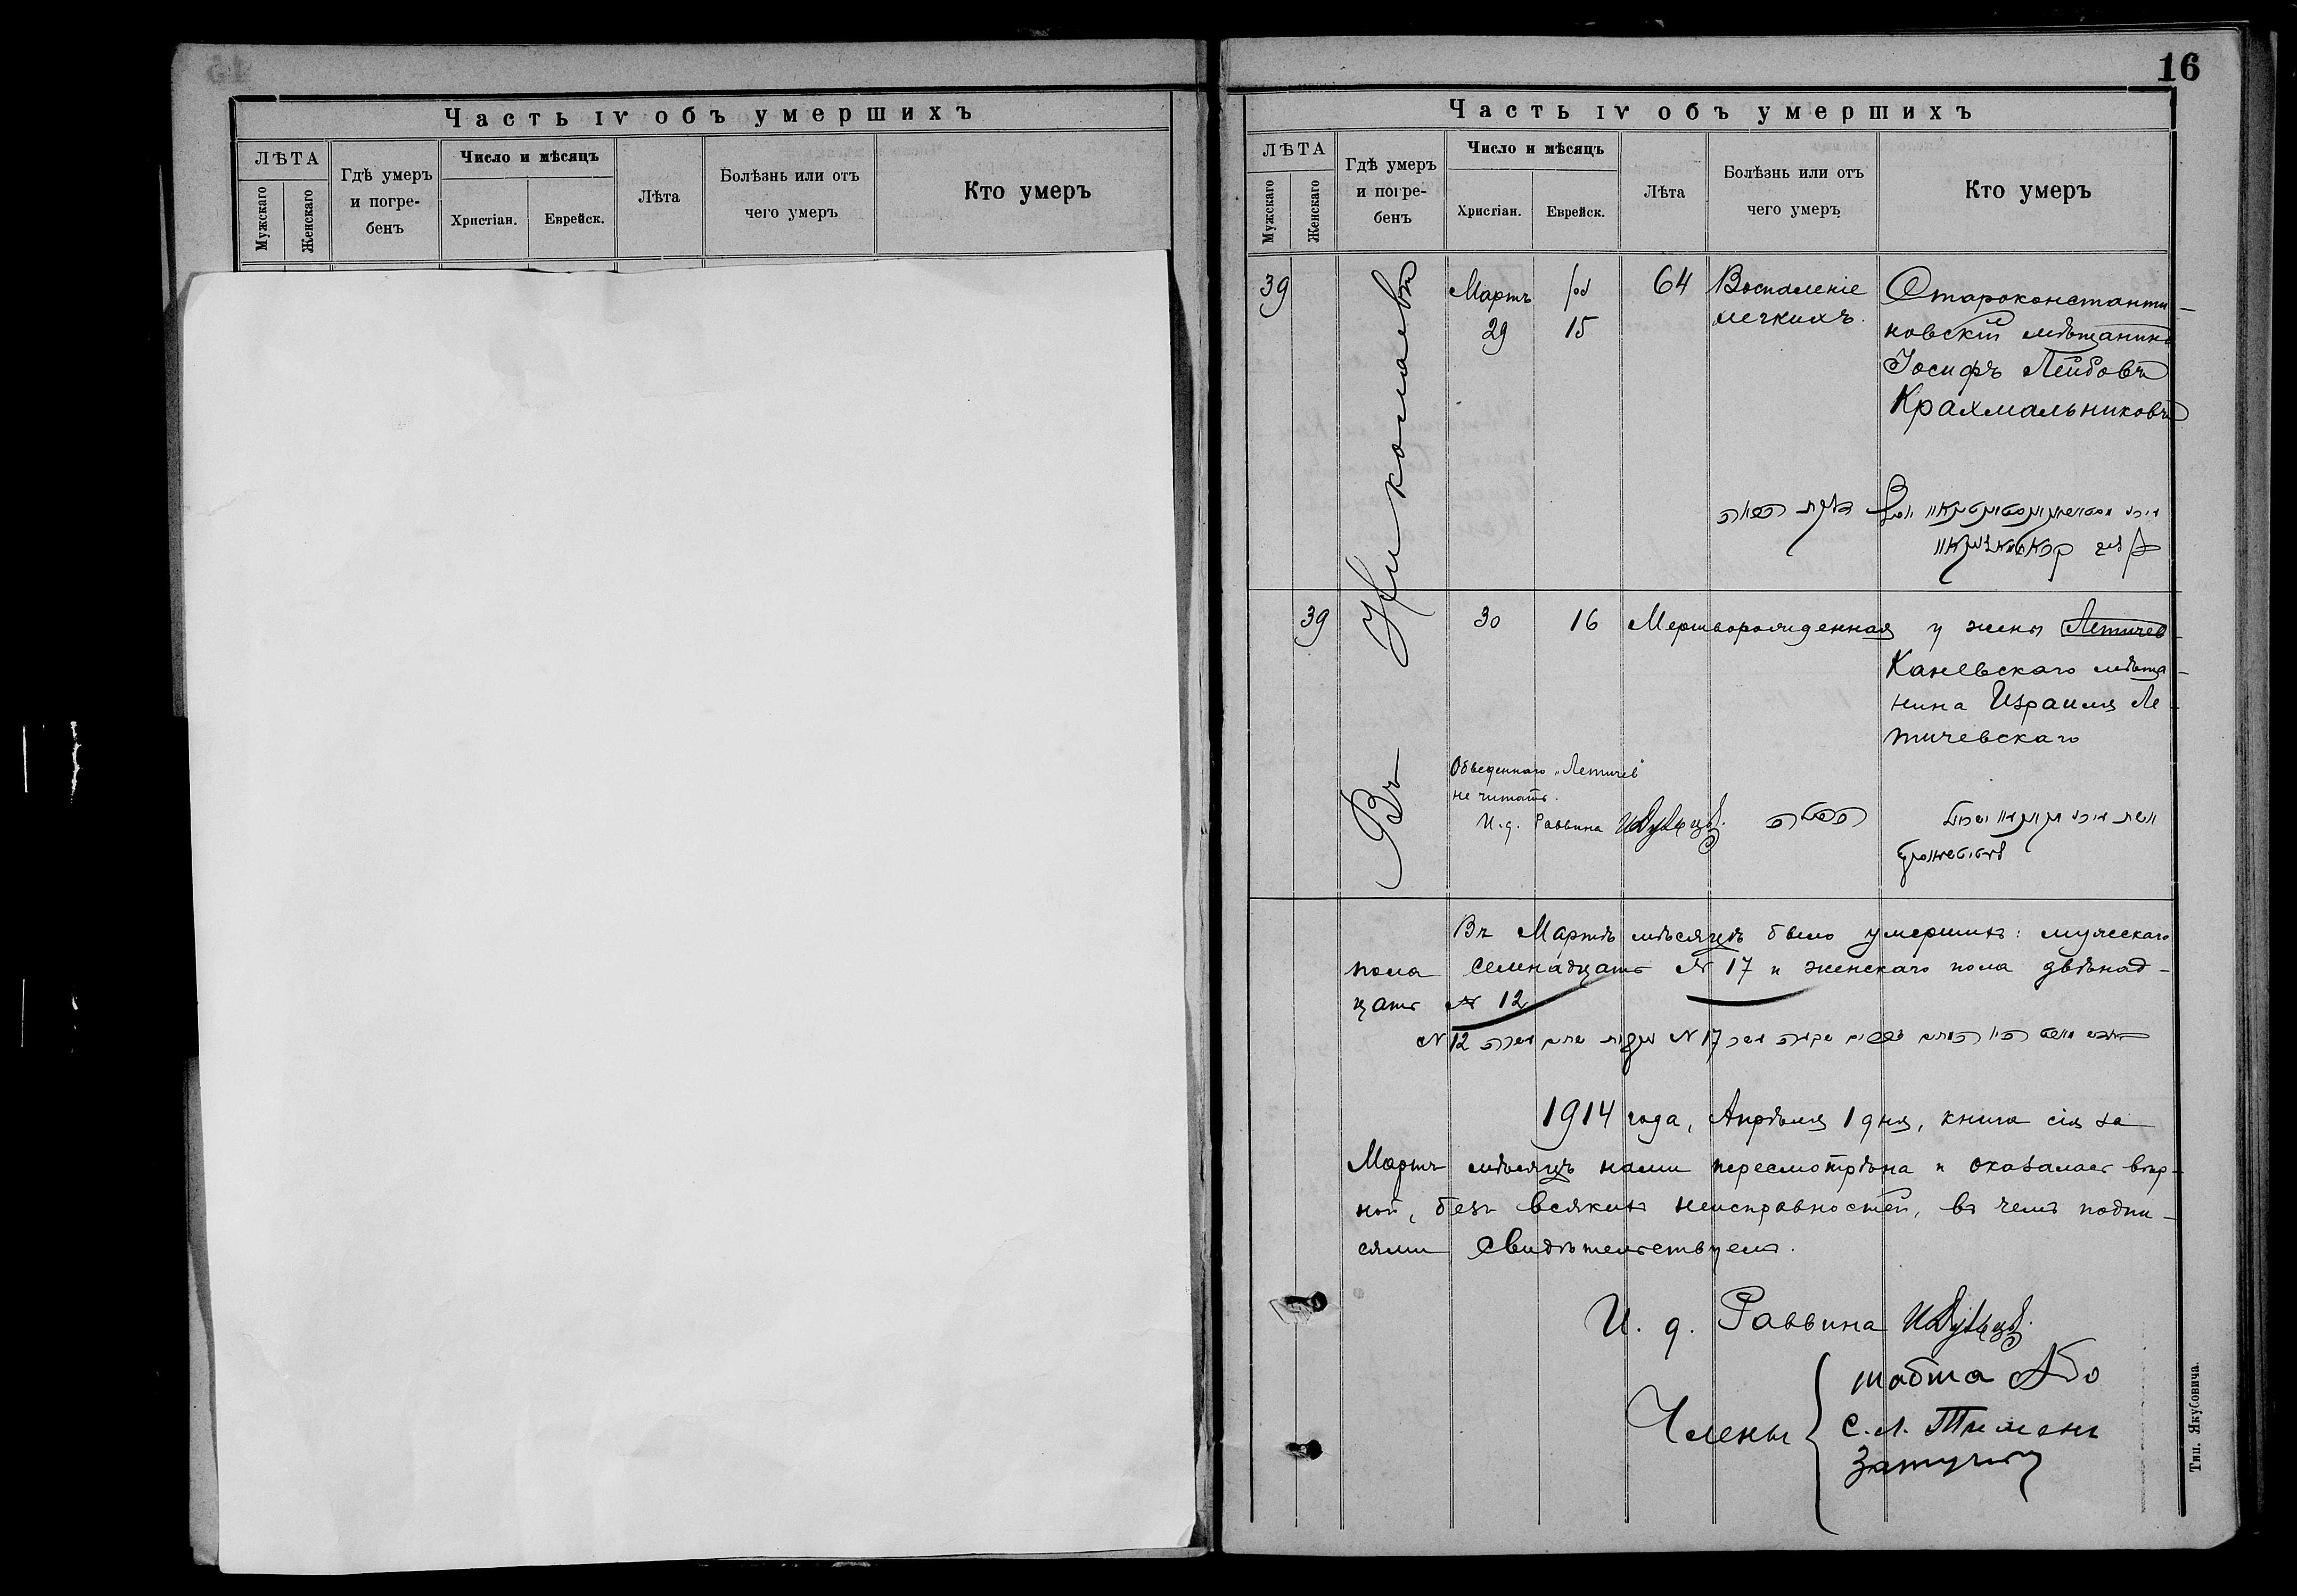 Часть IV объ умершихъ
ЛѢТА
Мужскаго
Женскаго
Гдѣ умеръ
и погре-
бенъ
Число и мѣсяцъ
Христіан.
Еврейск.
Лѣта
Болѣзнь или отъ
чего умеръ
Кто умеръ
16
Часть IV объ умершихъ
ЛѢТА
Мужскаго
Женскаго
Гдѣ умеръ
и погре-
бенъ
Число и мѣсяцъ
Христіан.
Еврейск.
Лѣта
Болѣзнь или отъ
чего умеръ
Кто умеръ
Въ Николаевѣ
39
Мартъ
29
15
64
Воспаленіе
легкихъ.
Староконстанти-
новскій мѣщанинъ
Іосифъ Лейбовъ
Крахмальниковъ
39
30
16
Мертворожденная у жены Летичев-
Каневскаго мѣща-
нина Израиля Ле-
тичевскаго
Обведеннаго „Летичев"
не читать.
И. д. Раввина
Въ Мартѣ мѣсяцѣ было умершихъ: мужескаго
пола семнадцать № 17 и женскаго пола двѣнад-
цать № 12
№ 12 № 17
1914 года, Апрѣля 1 дня, книга сія за
Мартъ мѣсяцъ нами пересмотрѣна и оказалась вѣр-
ной, безъ всякихъ неисправностей, въ чемъ подпи-
сями свидѣтельствуемъ.
И. д. Раввина
Члены
С. Л.
Тип. Якубовича.